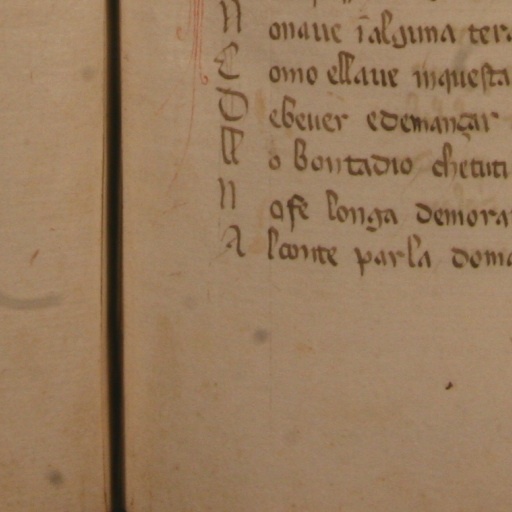 N onaue ĩ alguna tera
C omo ellaue inquesta
D ebeuer edemançar
M o bontadio chetuti
N ofe longa demora
A lconte parla doma